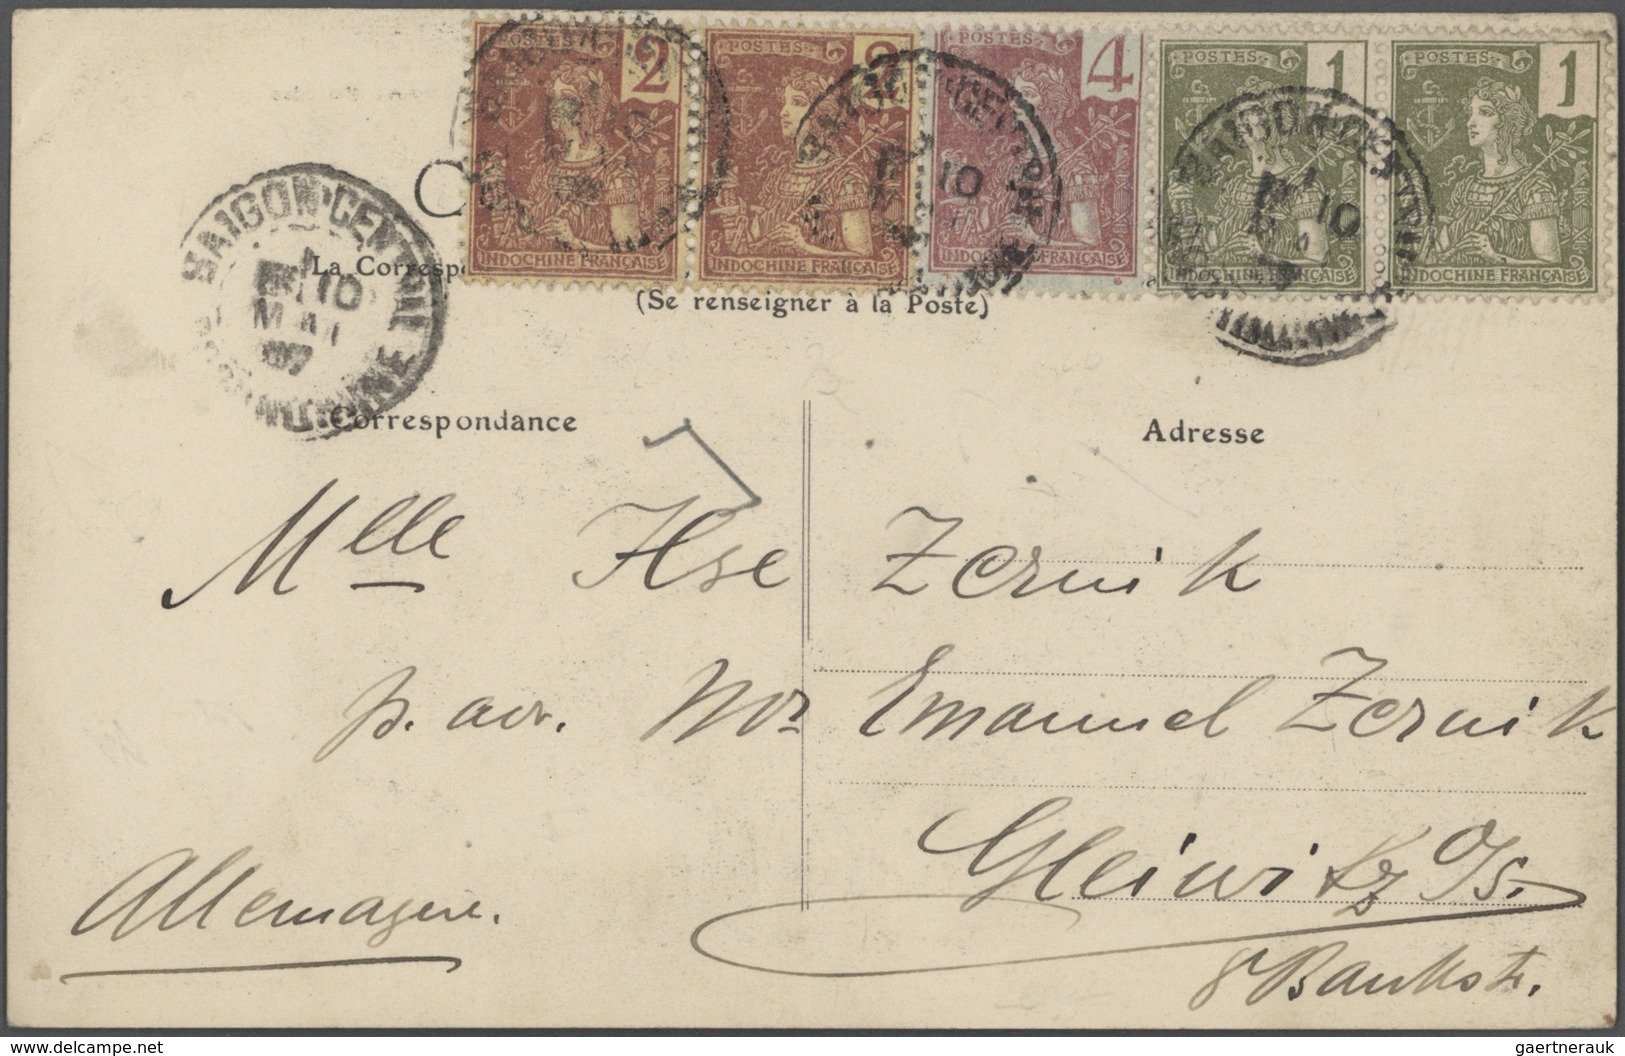 POSTES 2 POSTES 2 POSTES 4 POSTES 1 POSTES 1
INDOCHINE FRANÇAISE INDOCHINE FRANÇAISE INDOCHINE FRANÇAISE INDOCHINE FRANÇAISE INDOCHINE FRANÇAISE
SAIGON-CENTRAL
10
MAI
07
C
La Corresp
(Se renseigner à la Poste)
Correspondance
Adresse
Mlle Ilse Zernik
p. adr. Emanuel Zernik
Gleiwitz O/S.
8 Bankstr.
Allemagne.
delcampe.net
gaertnerauk